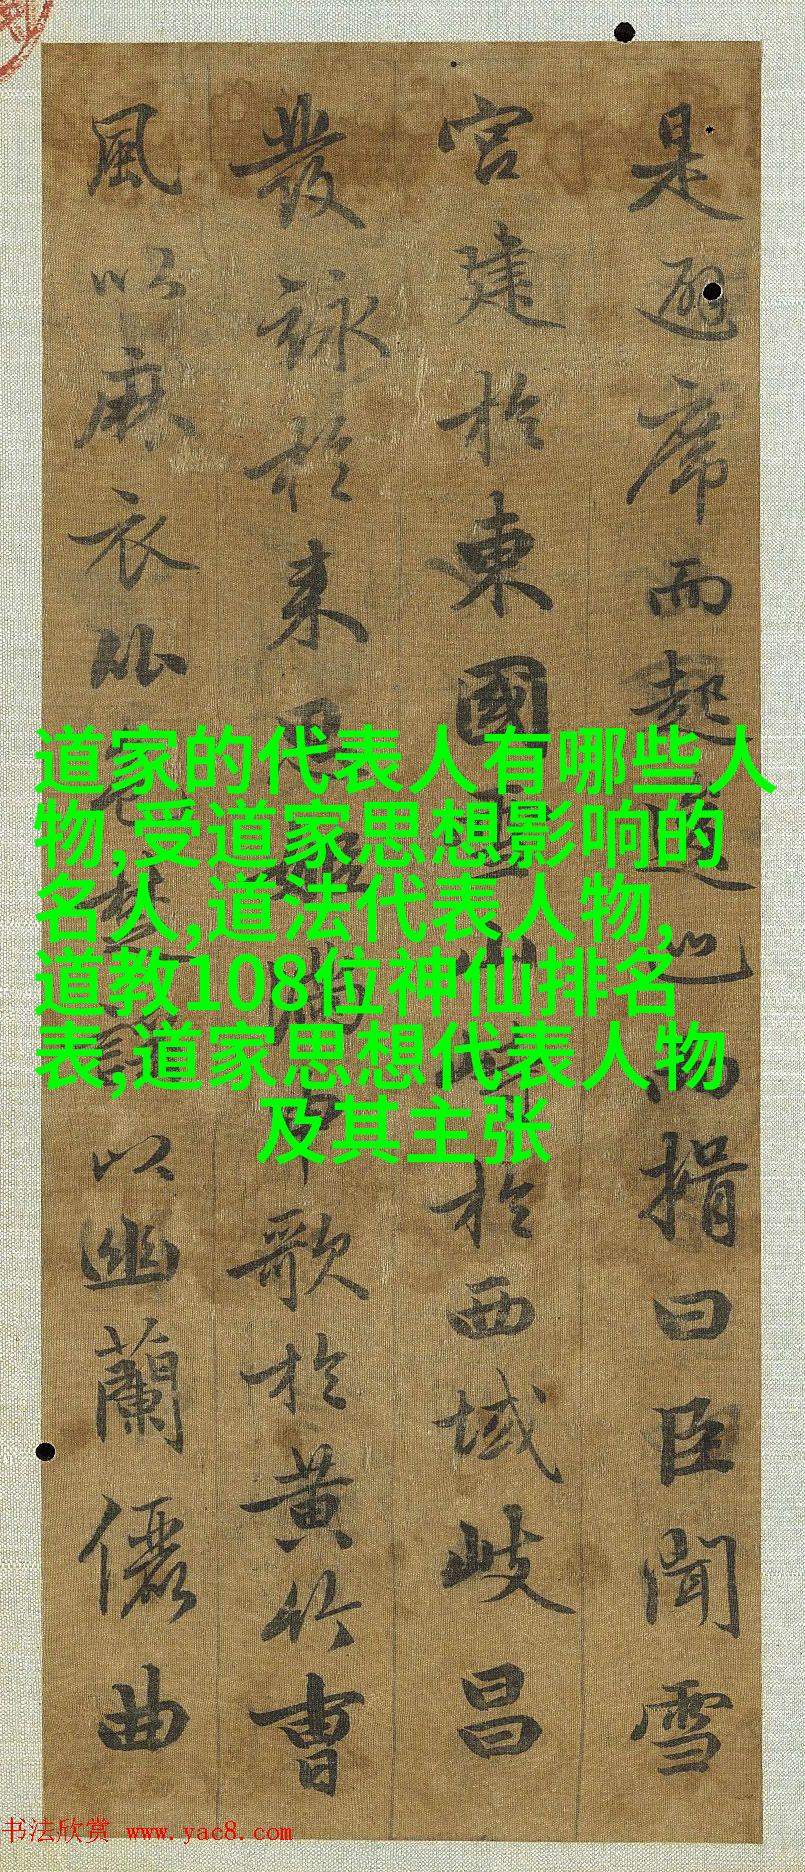 是避席而起逡巡而揖曰臣聞雪
宮建於東國山於西域岐昌
發詠於来思姬滿申歌於黄竹曹
風以麻衣比色楚以幽蘭儷曲
道家的代表人有哪些人
物,受道家思想影响的
名人,道法代表人物,
道教108位神仙排名
表,道家思想代表人物
及其主张
书法欣赏 www.yac8.com